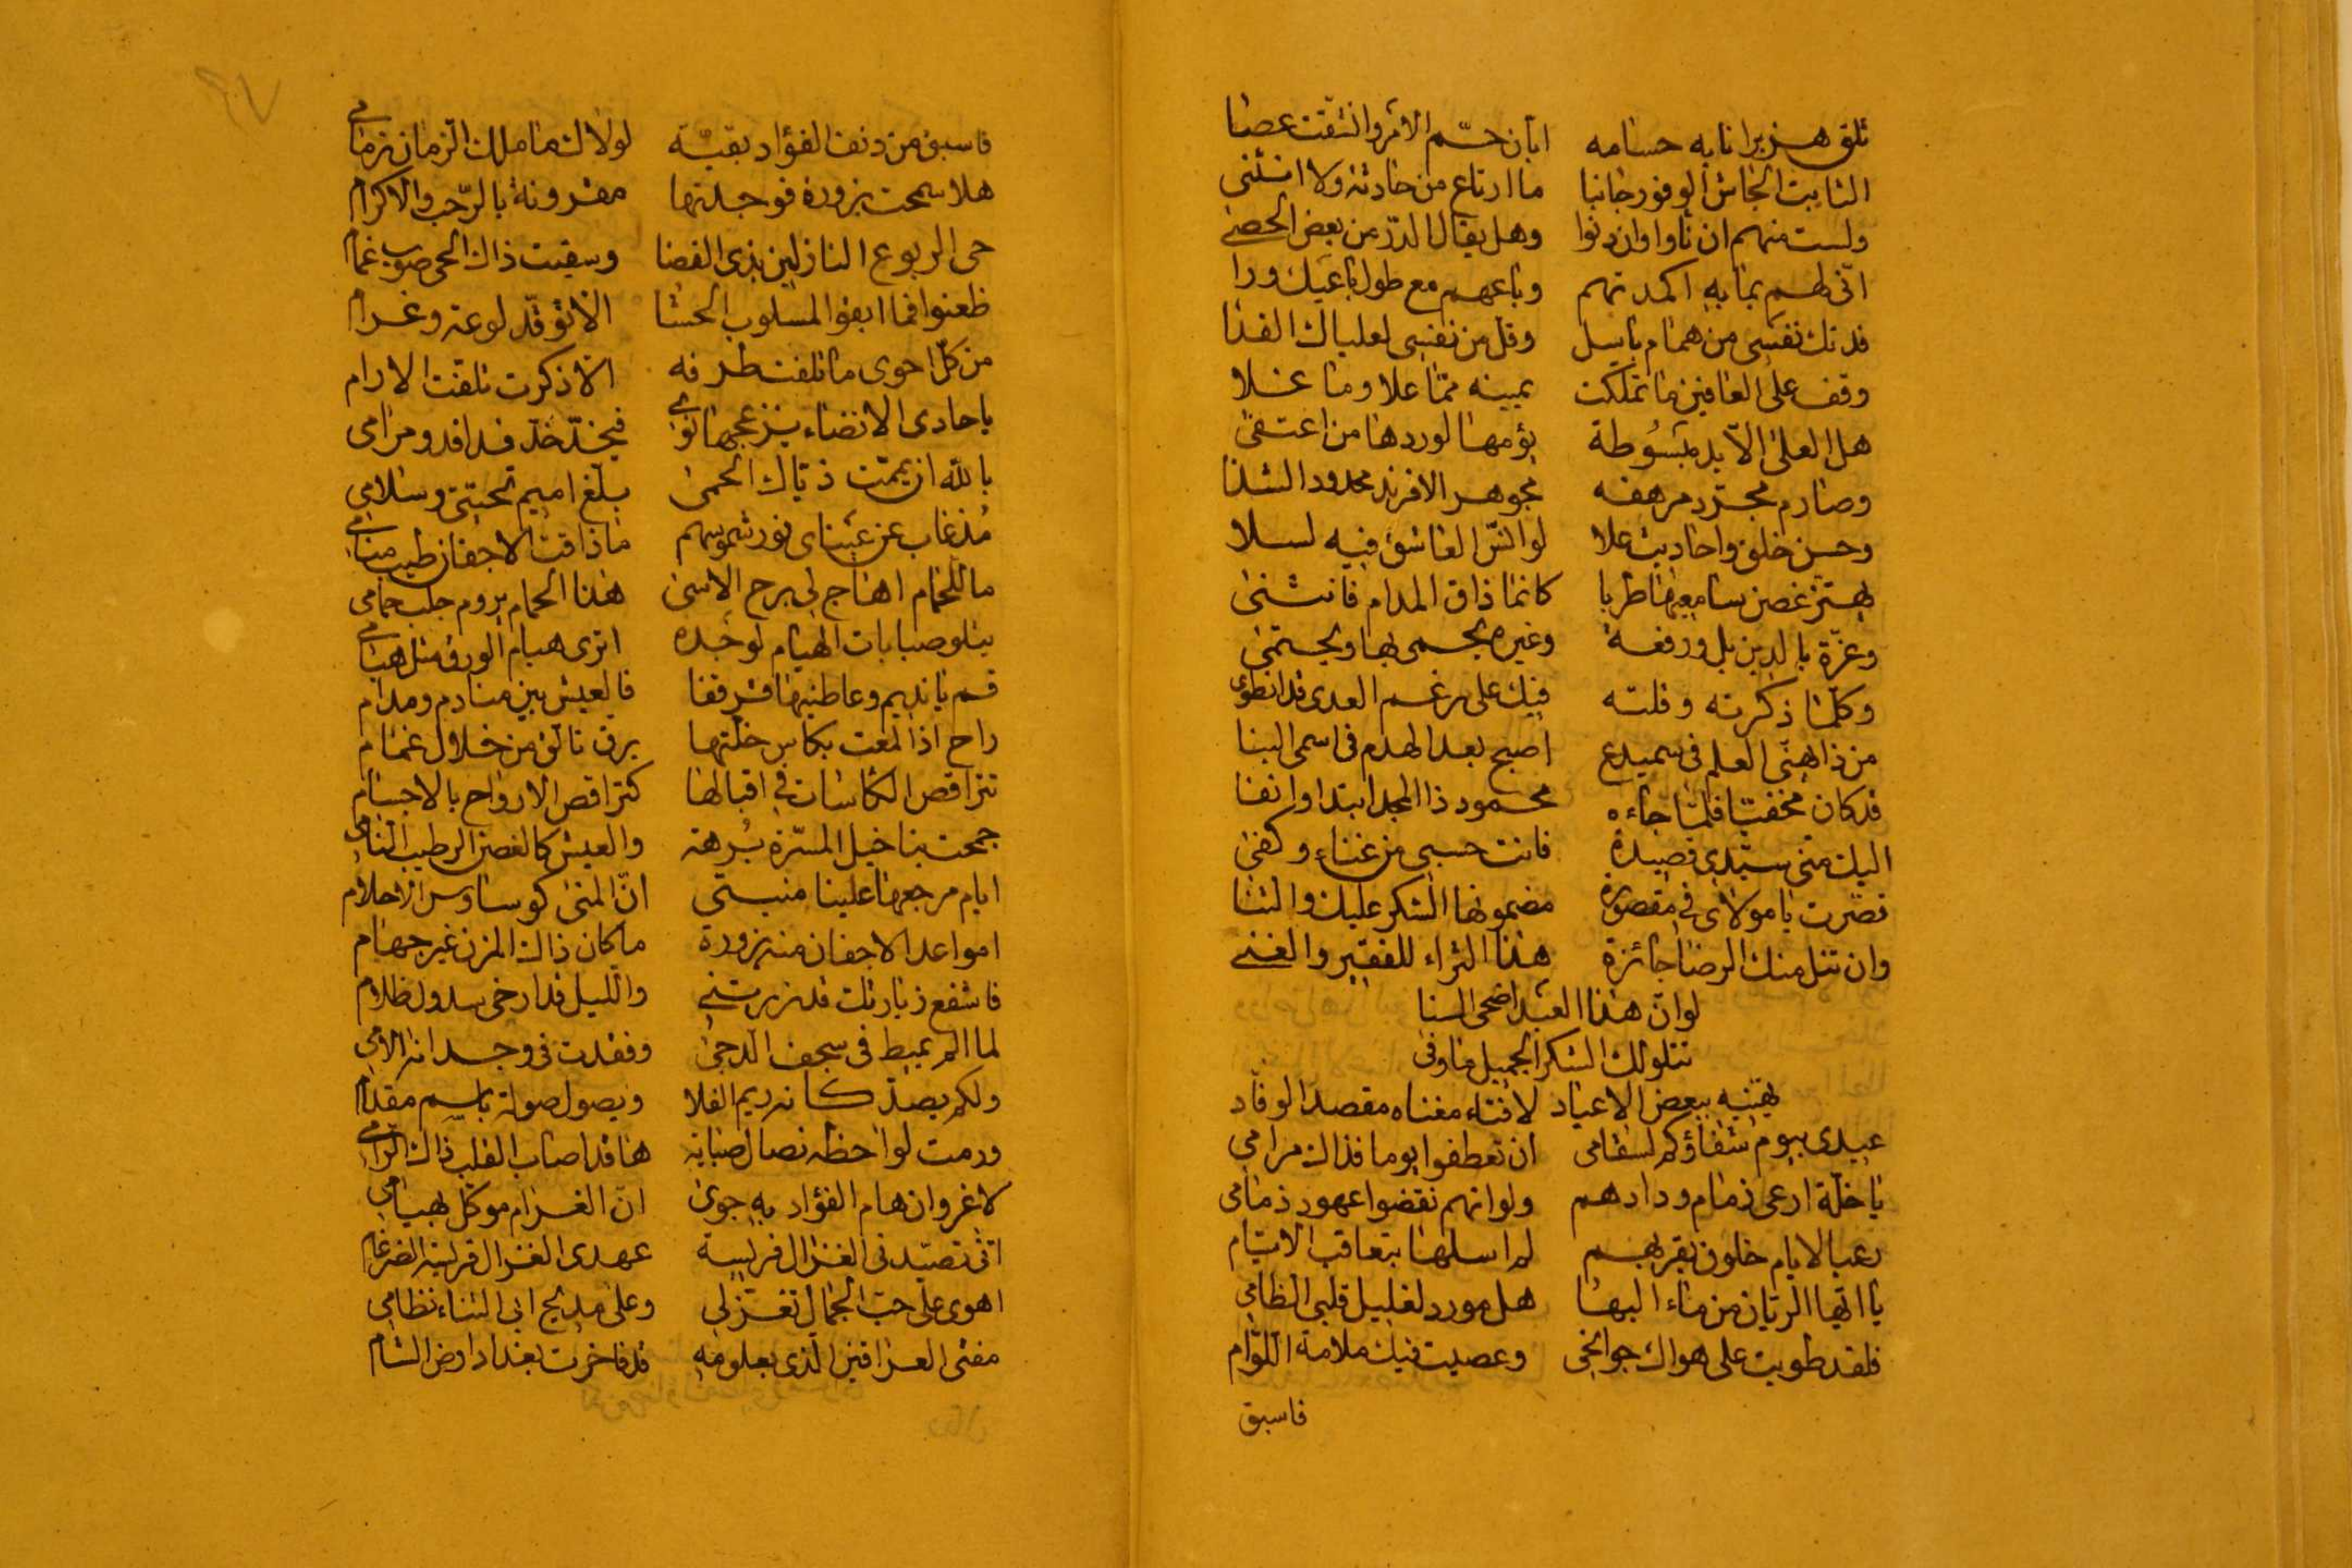 تلق هزبرا نابه حسامه ابان حمّ الامر وانشقت عصا
الثابت الجاش الوفور جانبا ما ارتاع من حادثة ولا انثنى
ولست منهم ان نأوا وان دنوا وهل يقال الدرّ من بعض الحصى
انّى لهم بما به اكمدتهم وباعهم مع طول باعيك ورا
فدتك نفسى من همام باسل وقل من نفسى لعلياك الفدا
وقف على العافين ما تملكت يمينه ممّا علا وما غلا
هل العلى الّا يد مبسُوطة يؤمها لوردها من اعتفى
وصارم مجرّد مرهفه مجوهر الافرند محدود الشذا
وحسن خلق واحاديث علا لو انسّ العاشق فيه لسلا
يهتز غصن سامعيها طربا كانما ذاق المدام فانثنى
وعزّة بالدين بل ورفعة وغيره يحمى بها ويحتمى
وكلّما ذكرته وقلته فيك على رغم العدى قد انطوى
من ذا يهنّى العلم فى سميدع اصبح بعد الهدم فى اسمى البنا
قد كان مخفيّا فلمّا جاءه محمود ذا المجد ابتدا وانفا
اليك منى سيّدى قصيدة فانت حسبى من غناء وكفى
نضرت يا مولاى فى مقصورة مضمونها الشكر عليك والثنا
وان تنل منك الرضا جائزة هذا الثراء للفقير والغنى
لو انّ هذا العبد اضحى السنا
تتلو لك الشكر الجميل ما وفى
يهنيه ببعض الاعياد لا فتاء مغناه مقصد الوفّاد
عيدى بيوم شفاؤكم لسقامى ان تعطفوا يوما فذاك مرامي
يا خلّة ارعى ذمام ودادهم ولو انهم نقضوا عهود ذمامى
رعيا لايام خلون بقربهم لم اسلها بتعاقب الايّام
يا ايّها الريّان من ماء البها هل مورد لغليل قلبي الظامي
فلقد طويت على هواك جوانحى وعصيت فيك ملامة اللوّام
فاسبق
فاسبق من دنف الفؤاد بقيّة لولاك ما ملك الزمان زمامي
هلا سمحت بزورة فوجدتها مقرونة بالرّحب والاكرام
حى الربوع النازلين بذى الغضا وسقيت ذاك الحى صوب غمام
ظعنوا فما ابقوا لمسلوب الحشا الا توقّد لوعة وغرام
من كلّ احوى ما تلفت طرفه الا ذكرت تلفّت الارام
يا حادى الانضاء يزعجها النوى فيخدّ خدّ فدافد ومرامى
بالله ان يمّمت ذيّاك الحمى بلّغ اميم تحيتى وسلامي
مُذ غاب عن عيناى نور شموسهم ما ذاقت الاجفان طيب منامي
ما للحمام اهاج لى برح الاسى هذا الحمام يروم جلب حمامى
يتلو صبابات الهيام لوجده اترى هيام الورق مثل هيامي
قم يا نديم وعاطنيها قرقفا فالعيش بين منادم ومدام
راح اذا لمعت بكاس خلتها برق تالق من خلال غمام
تتراقص الكاسات فى اقبالها كتراقص الارواح بالاجسام
جمحت بنا خيل المسّرة بُرهة والعيش كالغصن الرطيب النامى
ايام مرجعها علينا منيتى انّ المنى كوساوس الاحلام
امواعد الاجفان منه بزورة ما كان ذاك المزن غير جهام
فاشفع زيارتك قد زرتنى والليل قد ارخى سدول ظلام
لما الم يميط فى سجف الدجى وفقدت فى وجدانه الامي
ولكم يصدّ كانه ريم الفلا ويصول صولة باسم مقدام
ورمت لواحظه نصال صبابة ها قد اصاب القلب ذاك الرامي
لا غرو ان هام الفؤاد به جوى انّ الغرام موكل بهيامي
انّى تصيّدنى الغزال فريسة عهدى الغزال فريسة الضرغام
اهوى على حبّ الجمال تغزلى وعلى مديح ابى الثناء نظامي
مفتى العراقين الذى بعلومه قد فاخرت بغداد ارض الشام